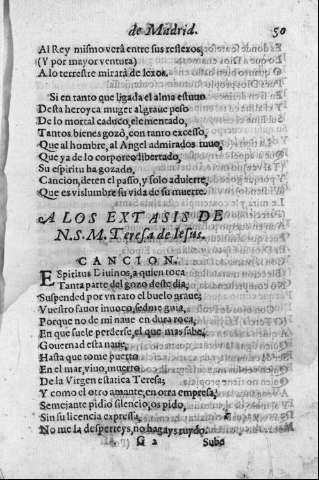 de Madrid. 50
Al Rey mismo verà entre sus reflexos,
(Y por mayor ventura)
A lo terrestre mirarà de lexos.
Si en tanto que ligada el alma estuuo
Desta heroyca muger al graue peso
De lo mortal caduco, elementado,
Tantos bienes gozò, con tanto excesso,
Que al hombre, al Angel admirados tuuo,
Que ya de lo corporeo libertado,
Su espiritu ha gozado,
Cancion, deten el passo, y solo aduierte,
Que es vislumbre su vida de su muerte.
A LOS EXTASIS DE
N.S.M. Teresa de Iesus.
CANCION.
Espiritus Diuinos, a quien toca
Tanta parte del gozo deste dia,
Suspended por vn rato el buelo graue;
Vuestro fauor inuoco, sedme guia,
Porque no de mi naue en dura roca,
En que suele perderse, el que mas sabe,
Gouernad esta naue,
Hasta que tome puerto
En el mar, viuo, muerto
De la Virgen estatica Teresa;
Y como el otro amante, en otra empresa,
Semejante pidio silencio, os pido,
Sin su licencia expressa,
No me la desperteys, no hagays ruydo.
G 2 Subo